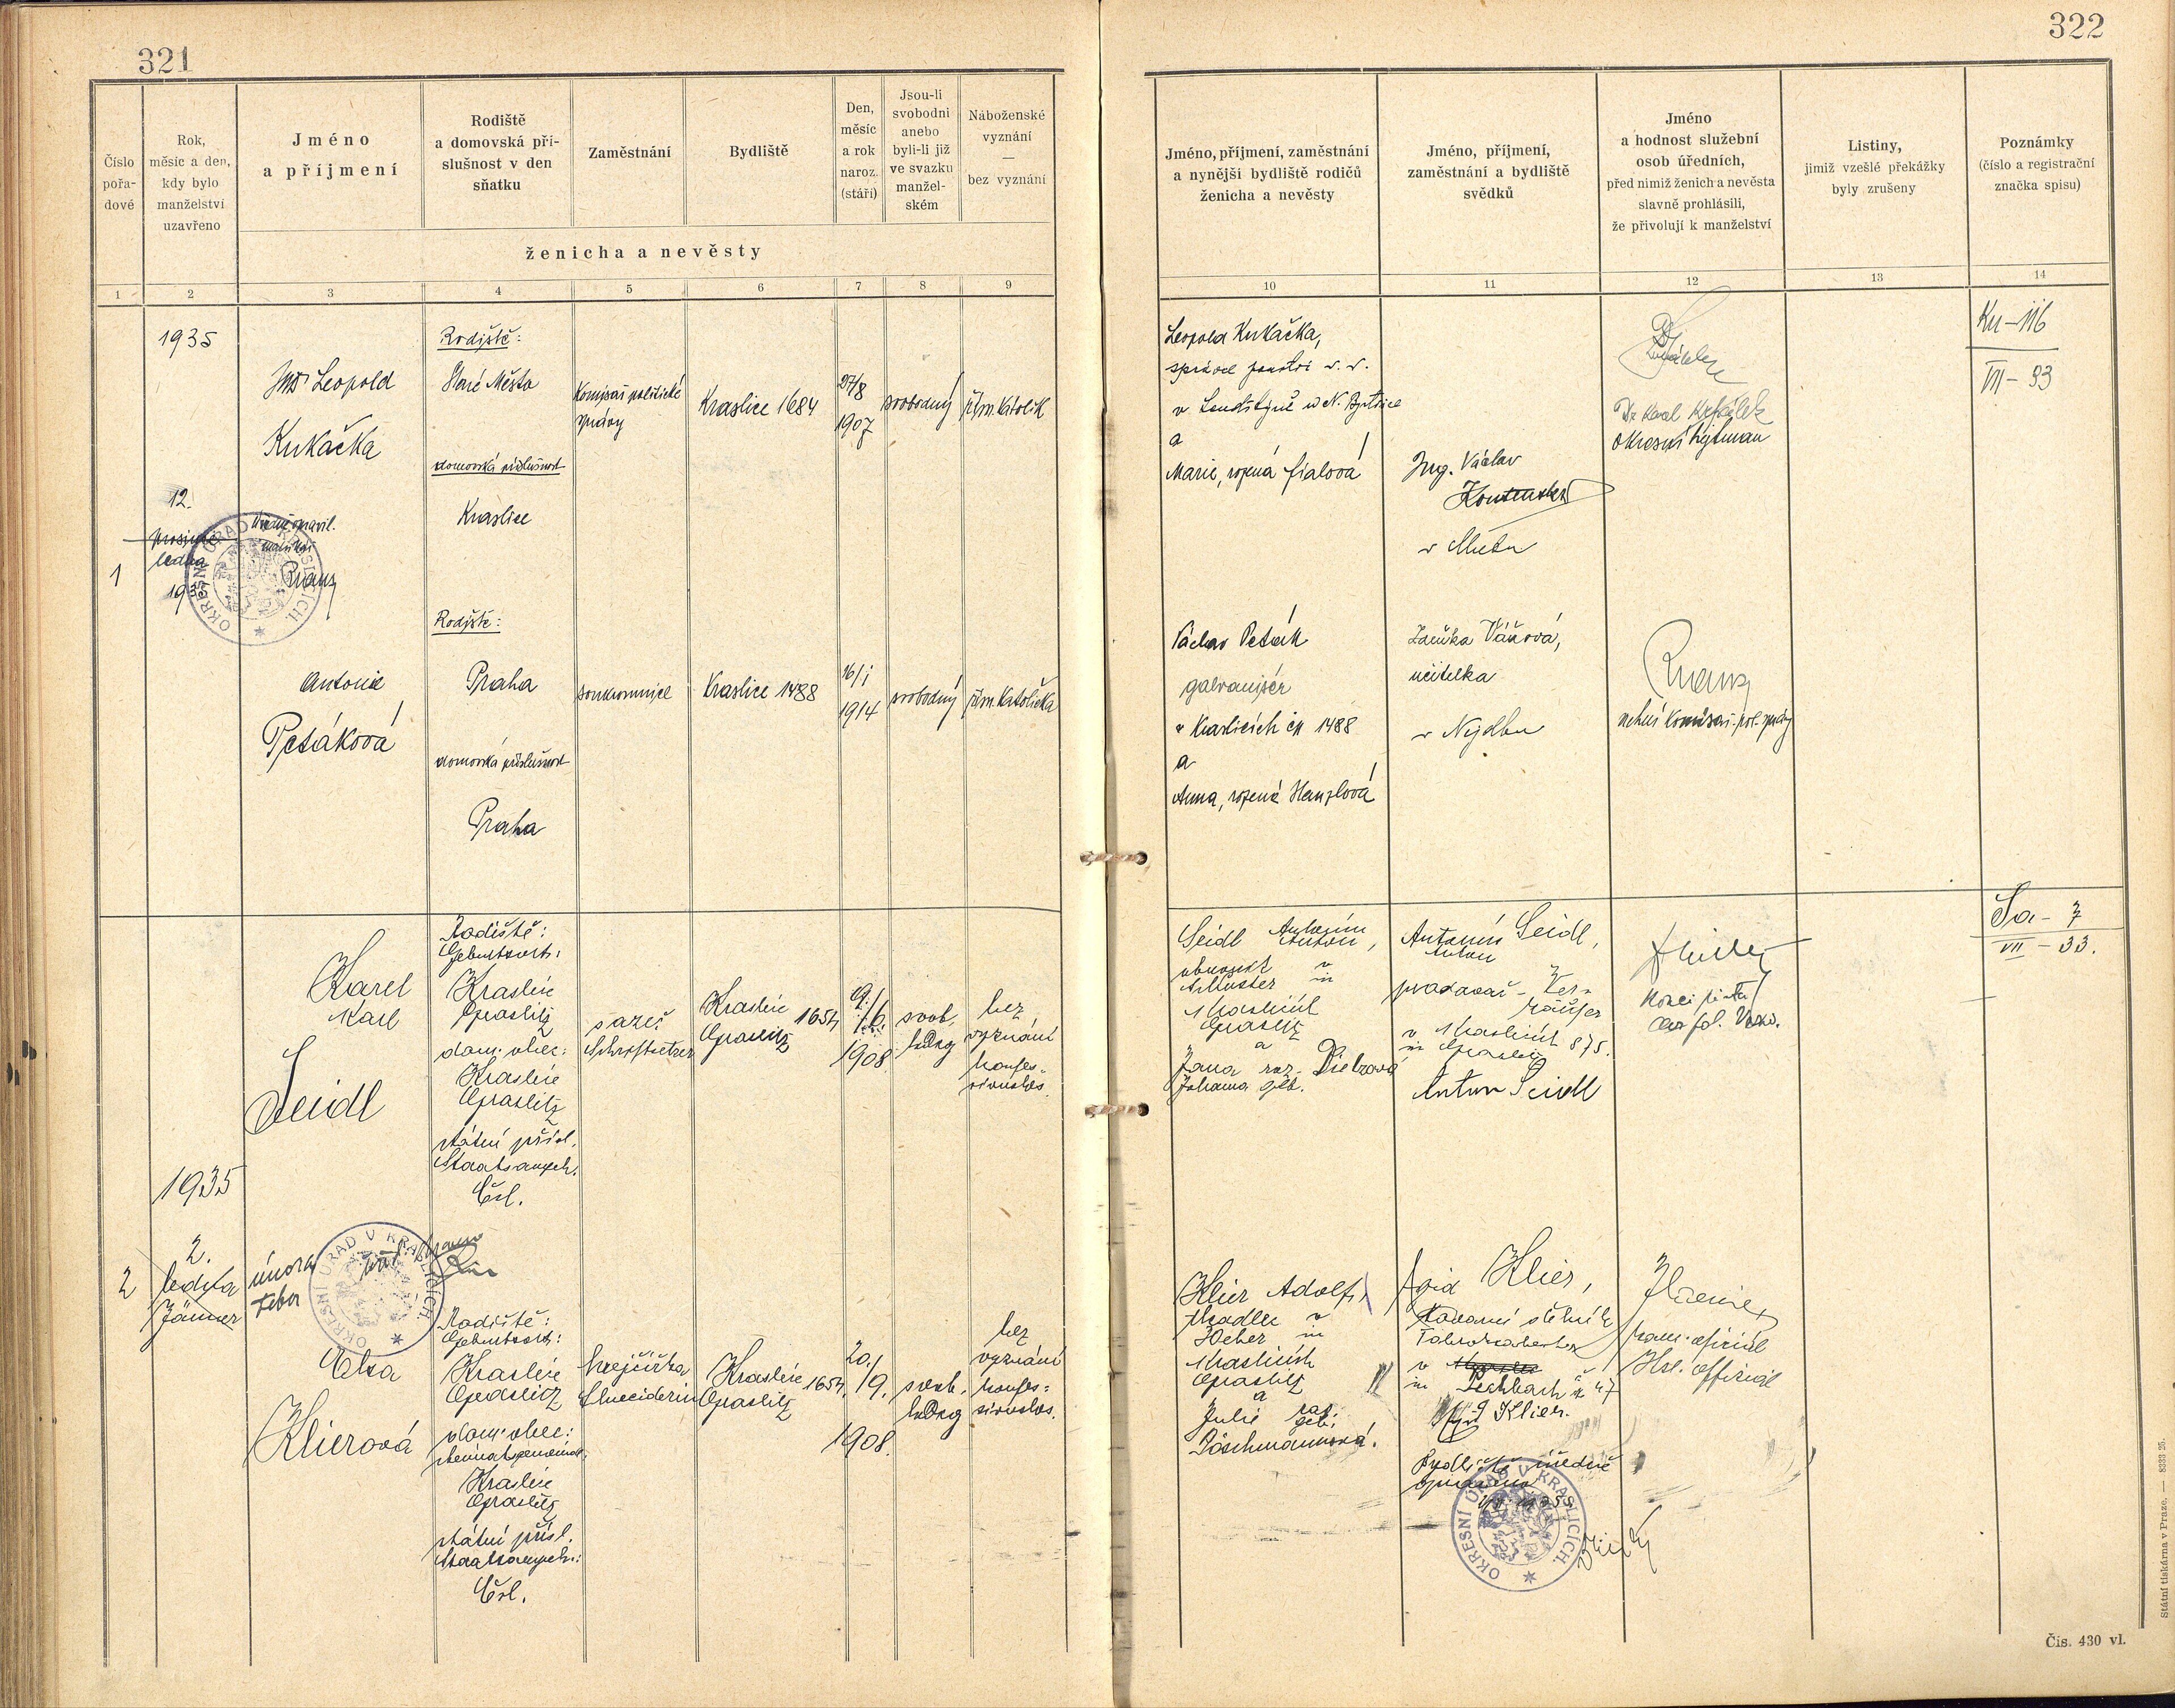 321
322
Číslo
pořa-
dové
Rok,
měsíc a den,
kdy bylo
manželství
uzavřeno
Jméno
a příjmení
Rodiště
a domovská pří-
slušnost v den
sňatku
Zaměstnání
Bydliště
Den,
měsíc
a rok
naroz.
(stáří)
Jsou-li
svobodni
anebo
byli-li již
ve svazku
manžel-
ském
Náboženské
vyznání
—
bez vyznání
ženicha a nevěsty
Jméno, příjmení, zaměstnání
a nynější bydliště rodičů
ženicha a nevěsty
Jméno, příjmení,
zaměstnání a bydliště
svědků
Jméno
a hodnost služební
osob úředních,
před nimiž ženich a nevěsta
slavně prohlásili,
že přivolují k manželství
Listiny,
jimiž vzešlé překážky
byly zrušeny
Poznámky
(číslo a registrační
značka spisu)
1 2 3 4 5 6 7 8 9 10 11 12 13 14
1
1935
12.
prosince
ledna
1935
Leopold
Kukačka
Rodiště:
Staré Město
domovská příslušnost
Kraslice
Komisař politické
správy
Kraslice 1684
27/8
1907
svobodný
řím. katolík
Leopold Kukačka,
správce panství v. v.
a
Marie, rozená Fialová
Ing. Václav
Dr Karel
okresní hejtman
Ku-116
VII-93
OKRESNÍ ÚŘAD V KRASLICÍCH.
Antonie
Petáková
Rodiště:
Praha
domovská příslušnost
Praha
soukromnice
Kraslice 1488
16/I
1914
svobodný
řím. katolička
Václav Peták
galvanisér
v Kraslicích čp 1488
a
Anna, rozená Hanzlová
Zdeňka Váňová,
učitelka
v Nejdku
komisař pol. správy
2
1935
2.
ledna
Jänner
února
Feber
Karel
Karl
Seidl
Rodiště:
Geburtsort:
Kraslice
Graslitz
dom. obec:
Kraslice
Graslitz
státní přísl.
Staatsangeh.
Čsl.
sazeč
Schriftsetzer
Kraslice
Graslitz 1654
9./6.
1908
svob.
ledig
bez
vyznání
konfes-
sionslos.
Seidl Antonín
Anton,
v
in
Kraslicích
Graslitz
a
Jana roz.
Johanna geb.
Antonín Seidl,
Anton
prodavač - Ver-
käufer
v Kraslicích 875.
in Graslitz
Anton Seidl
Sa-7
VII-33.
OKRESNÍ ÚŘAD V KRASLICÍCH.
Elsa
Klierová
Rodiště:
Geburtsort:
Kraslice
Graslitz
dom. obec:
Heimatsgemeinde:
Kraslice
Graslitz
státní přísl.
Staatsangeh.:
Čsl.
krejčířka
Schneiderin
Kraslice
Graslitz 1654.
20./9.
1908.
svob.
ledig
bez
vyznání
konfes-
sionslos.
Klier Adolf,
tkadlec v
Weber in
Kraslicích
Graslitz
a
Julie roz.
geb.
Pöschmannová.
Klier,
tovární dělník
Fabriksarbeiter
v
in Pechbach č 47
Klier.
Bydliště úředně
opraveno
kanc. oficiál
Kzl. offizial
OKRESNÍ ÚŘAD V KRASLICÍCH.
Státní tiskárna v Praze. — 8333 25.
Čís. 430 vl.